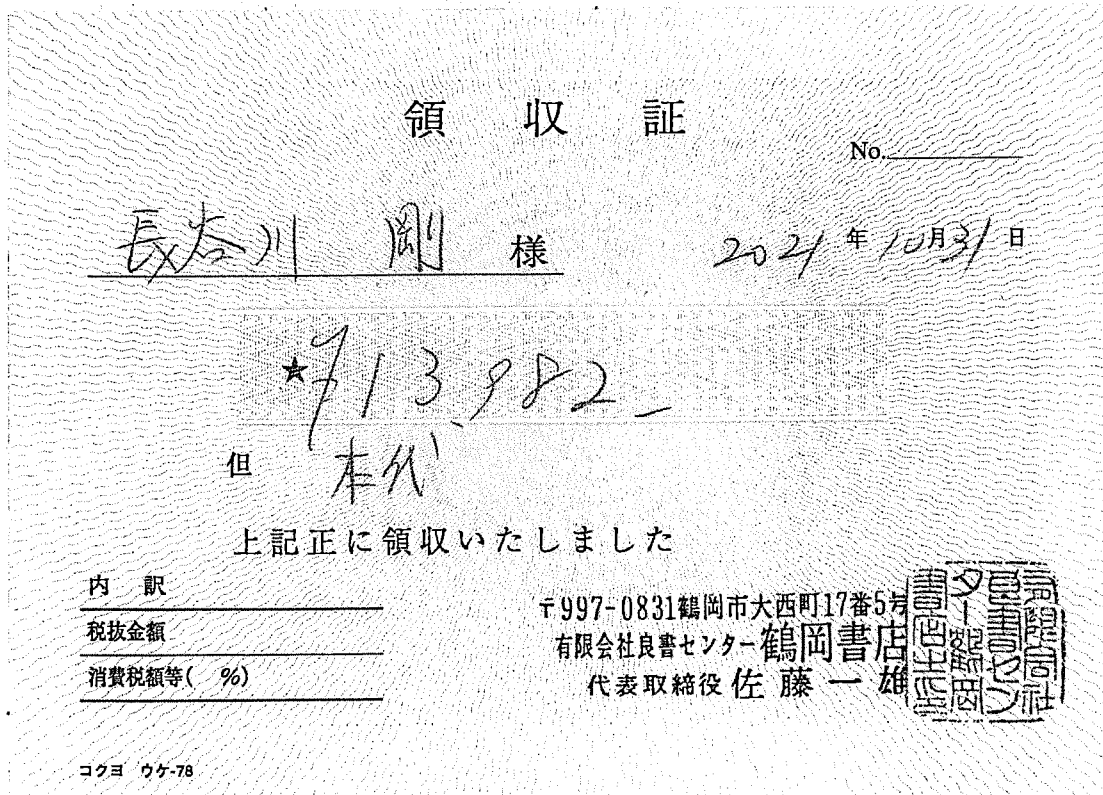 領収証
No.
長谷川 剛 様
2021年10月31日
★¥13,982-
但 本代
上記正に領収いたしました
内訳
税抜金額
消費税額等( %)
〒997-0831鶴岡市大西町17番5号
有限会社良書センター鶴岡書店
代表取締役 佐藤一雄
有限会社
良書セン
ター鶴岡
書店之印
コクヨ ウケ-78